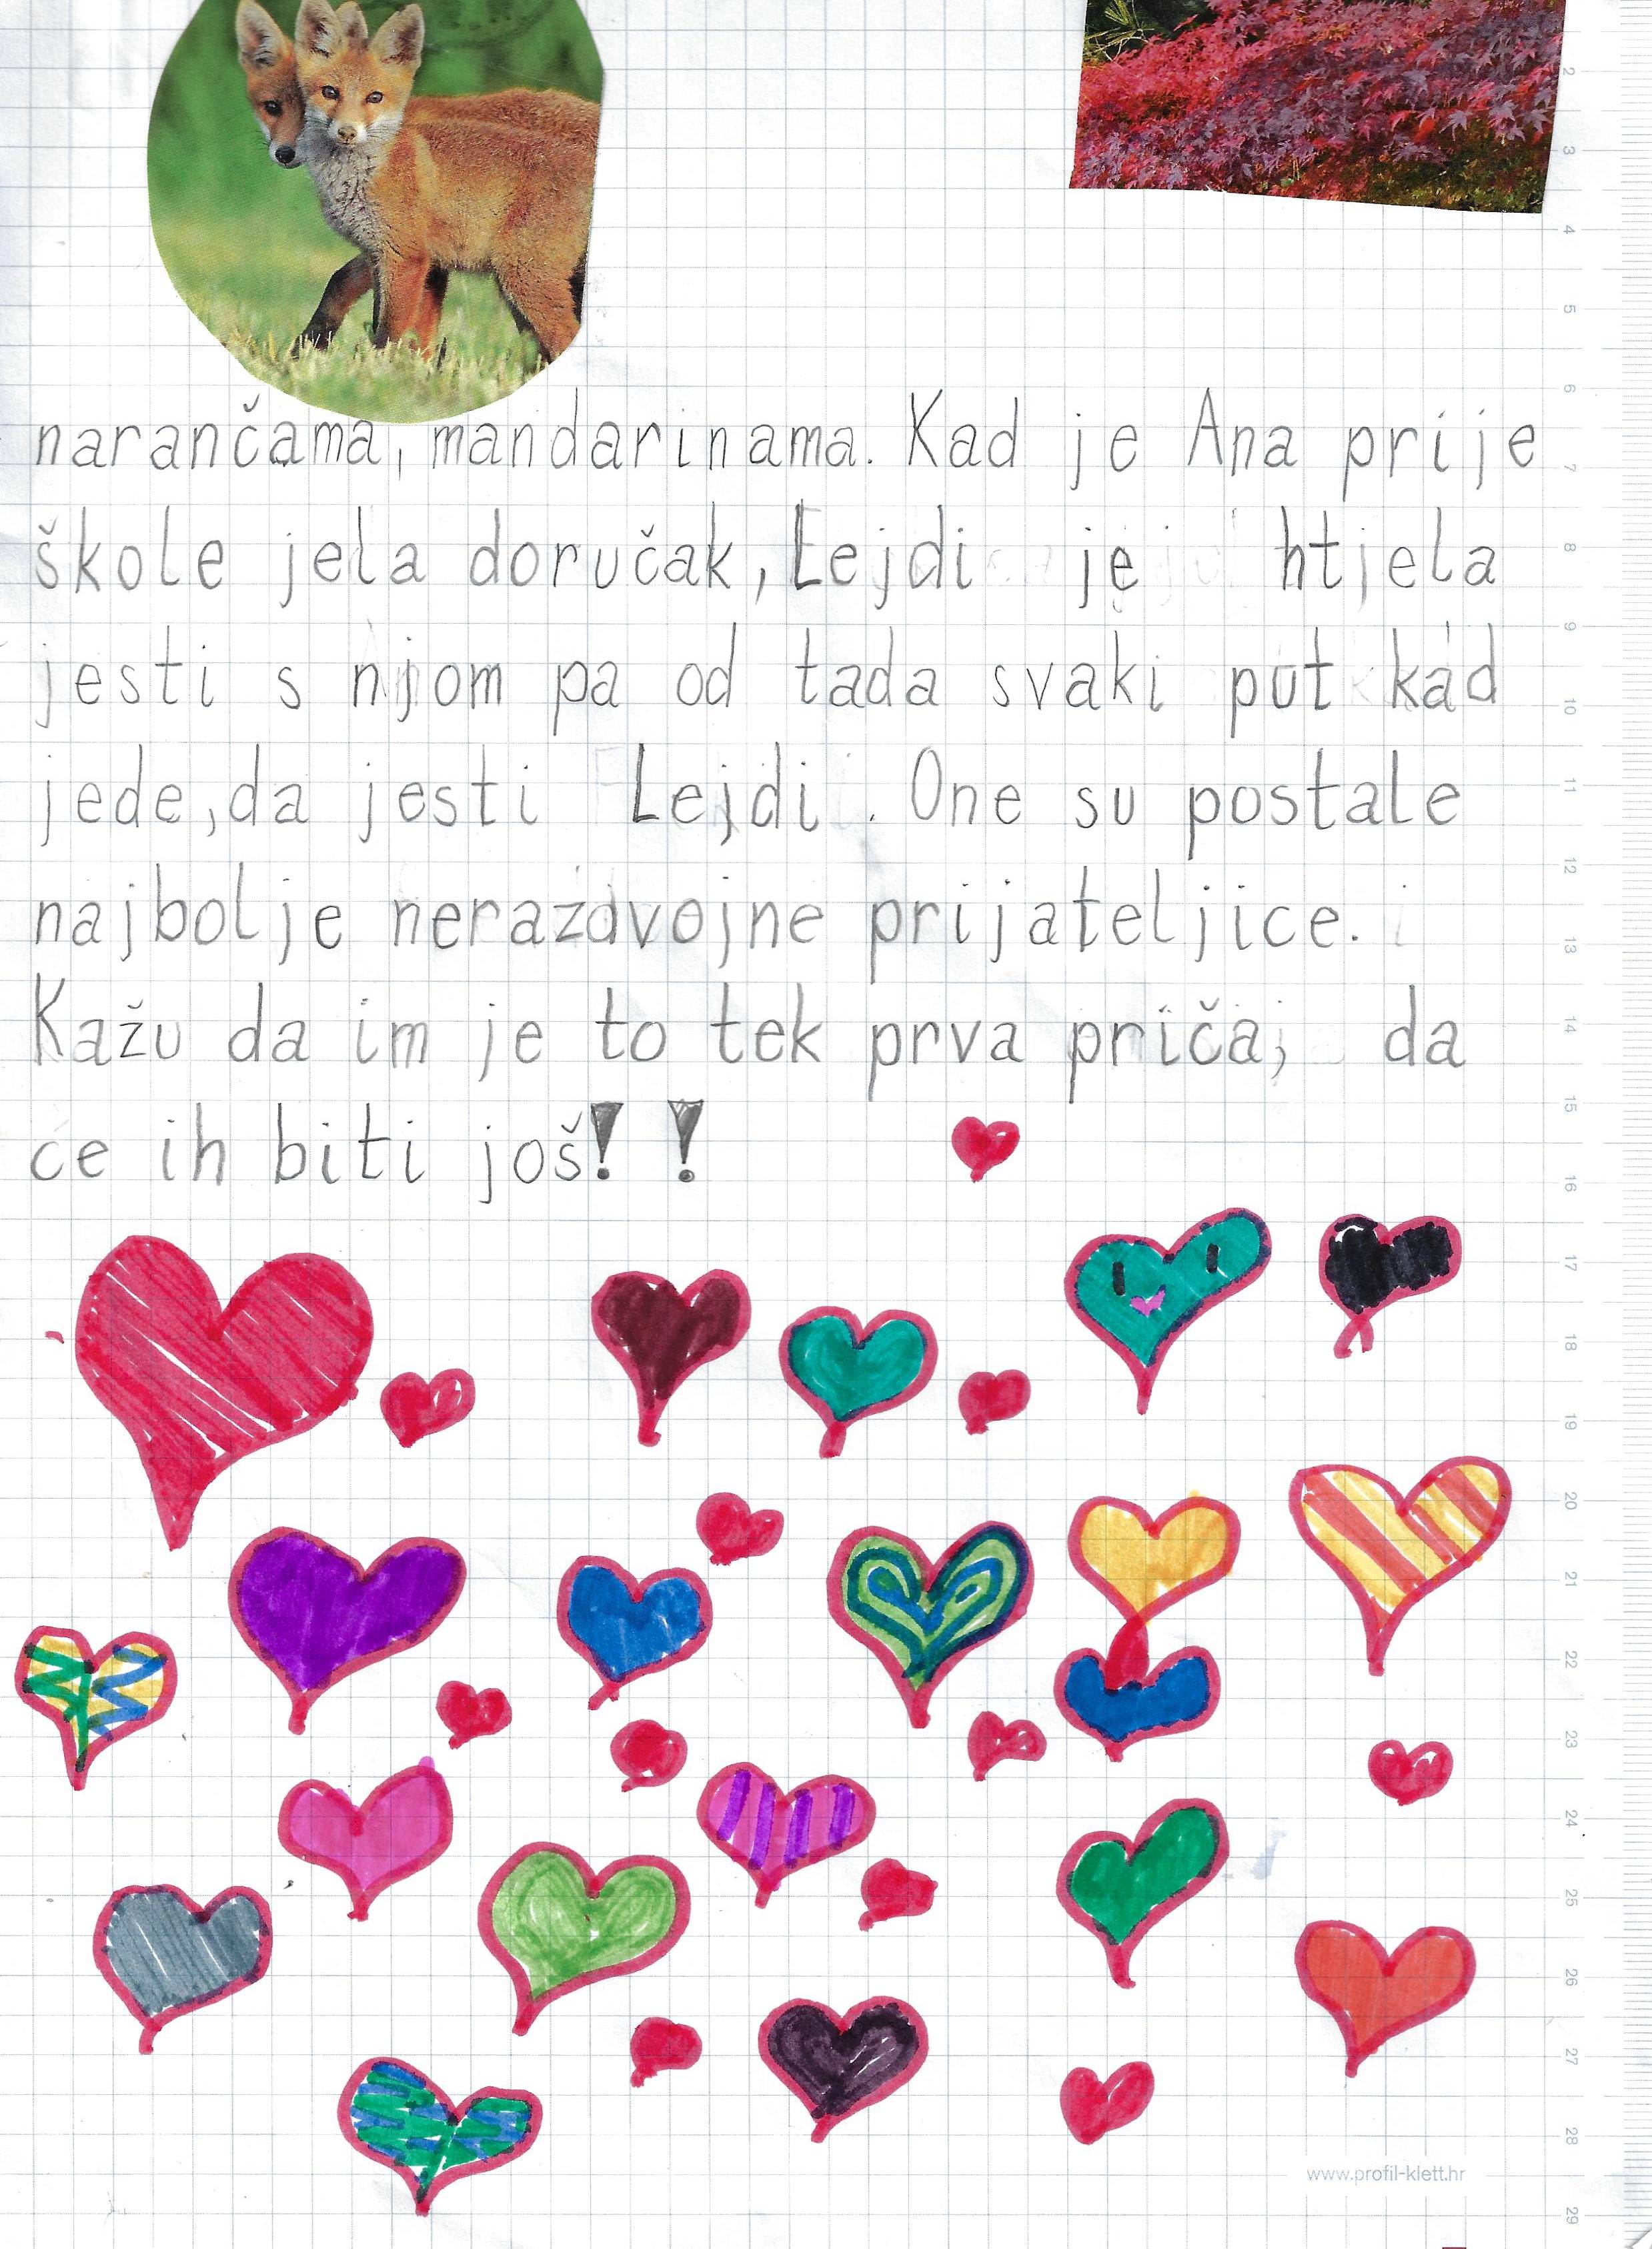 narančama, mandarinama. Kad je Ana prije
škole jela doručak, Lejdi je htjela
jesti s njom pa od tada svaki put kad
jede, da jesti Lejdi. One su postale
najbolje nerazdvojne prijateljice.
Kažu da im je to tek prva priča, da
će ih biti još! !
2
3
4
5
6
7
8
9
10
11
12
13
14
15
16
17
18
19
20
21
22
23
24
25
26
27
28
29
www.profil-klett.hr